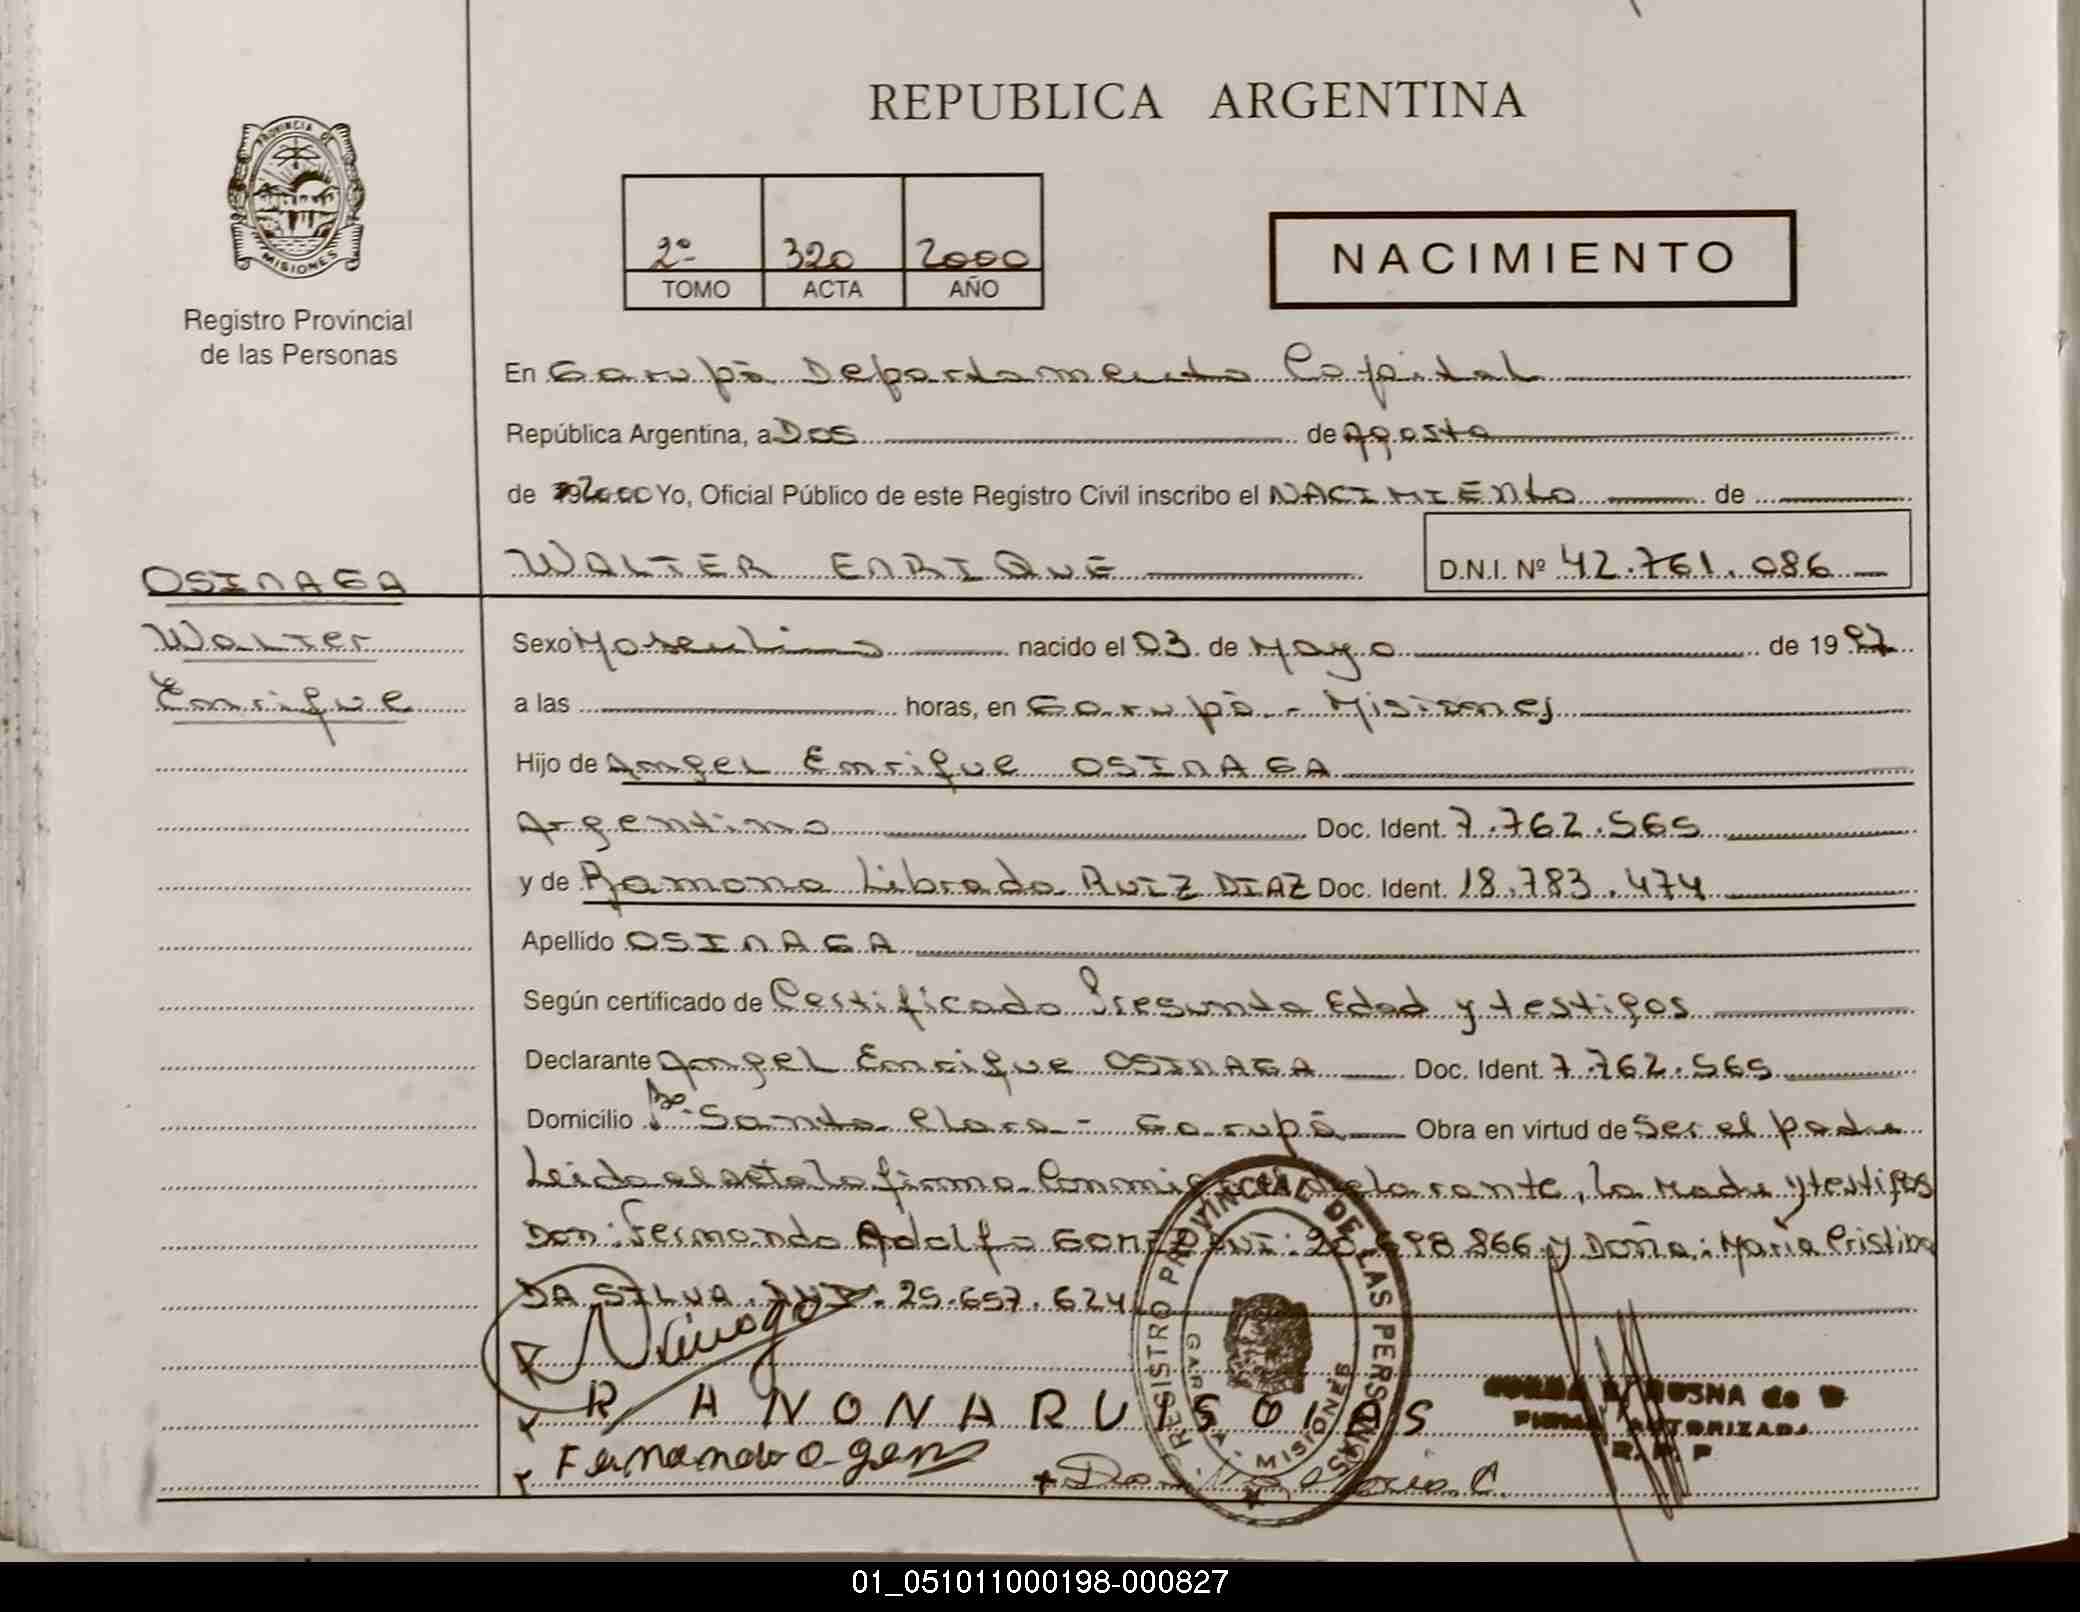 REPUBLICA ARGENTINA
PROVINCIA DE
MISIONES
Registro Provincial
de las Personas
2º 320 2000
TOMO ACTA AÑO
NACIMIENTO
En Garupá Departamento Capital
República Argentina, a Dos de Agosto
de 2000 Yo, Oficial Público de este Registro Civil inscribo el NACIMIENTO de
WALTER ENRIQUE D.N.I. Nº 42.761.086
OSINAGA
Walter
Enrique
Sexo Masculino nacido el 03 de Mayo de 19 97
a las horas, en Garupá - Misiones
Hijo de Angel Enrique OSINAGA
Argentino Doc. Ident. 7.762.565
y de Ramona Librada RUIZ DIAZ Doc. Ident. 18.783.474
Apellido OSINAGA
Según certificado de Certificado Presunta Edad y testigos
Declarante Angel Enrique OSINAGA Doc. Ident. 7.762.565
Domicilio Bº Santa Clara - Garupá Obra en virtud de Ser el padre
Leida el acta la firma Conmigo el declarante, la Madre y testigos
Don: Fernando Adolfo DNI: 20. 98.866 y Doña: María Cristina
DA SILVA. DNI. 25.657.624
REGISTRO PROVINCIAL DE LAS PERSONAS
MISIONES
R A NONA RUIS DIAS
Fernando
FIRMA AUTORIZADA
R. P. P
01_051011000198-000827